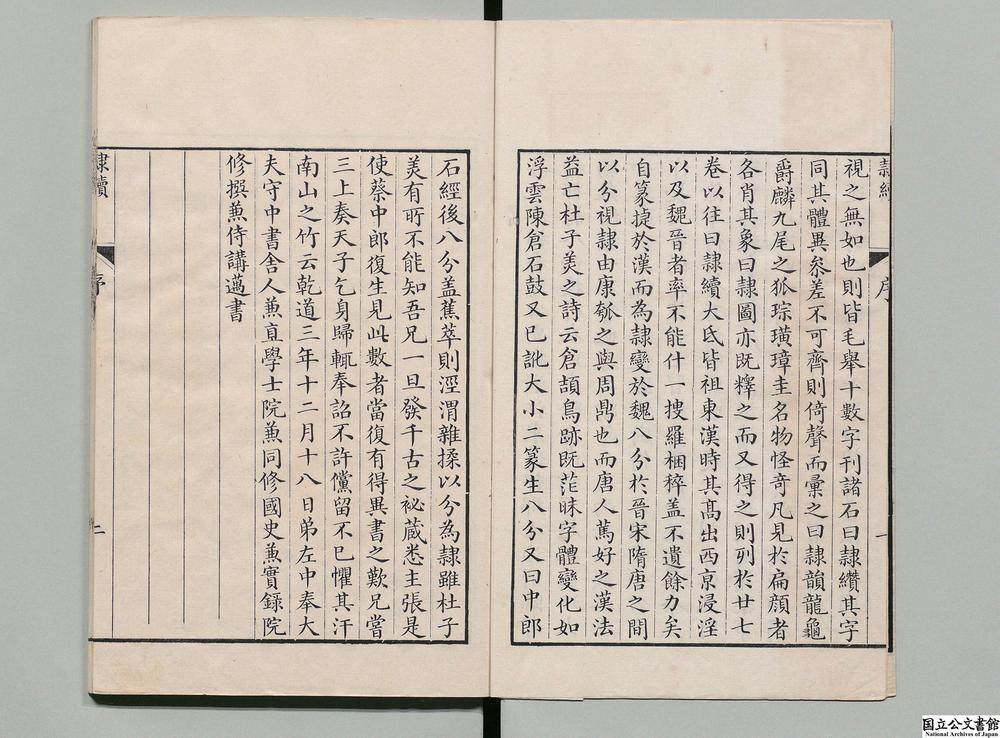 隸續
序
一
視之無如也則皆毛舉十數字刊諸石曰隸纘其字
同其體異叅差不可齊則倚聲而彙之曰隸韻龍龜
爵麟九尾之狐琮璜璋圭名物怪奇凡見於扁顔者
各肖其象曰隸圖亦既釋之而又得之則列於廿七
卷以往曰隸續大氐皆祖東漢時其髙出西京浸淫
以及魏晉者率不能什一捜羅梱稡盖不遺餘力矣
自篆捷於漢而為隸變於魏八分於晉宋隋唐之間
以分視隸由康瓠之與周鼎也而唐人篤好之漢法
益亡杜子美之詩云倉頡鳥跡既茫昧字體變化如
浮雲陳倉石鼓又已訛大小二篆生八分又曰中郎
石經後八分盖蕉萃則涇渭雜揉以分為隸雖杜子
美有所不能知吾兄一旦發千古之祕蔵悉主張是
使蔡中郎復生見此數者當復有得異書之歎兄嘗
三上奏天子乞身歸輒奉詔不許儻留不已懼其汗
南山之竹云乾道三年十二月十八日弟左中奉大
夫守中書舍人蕪直學士院蕪同修國史蕪實錄院
修撰蕪侍講邁書
隸續
序
二
国立公文書館
National Archives of Japan